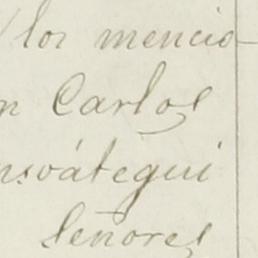 los mencio
n Carlos
nsoátegui
señores